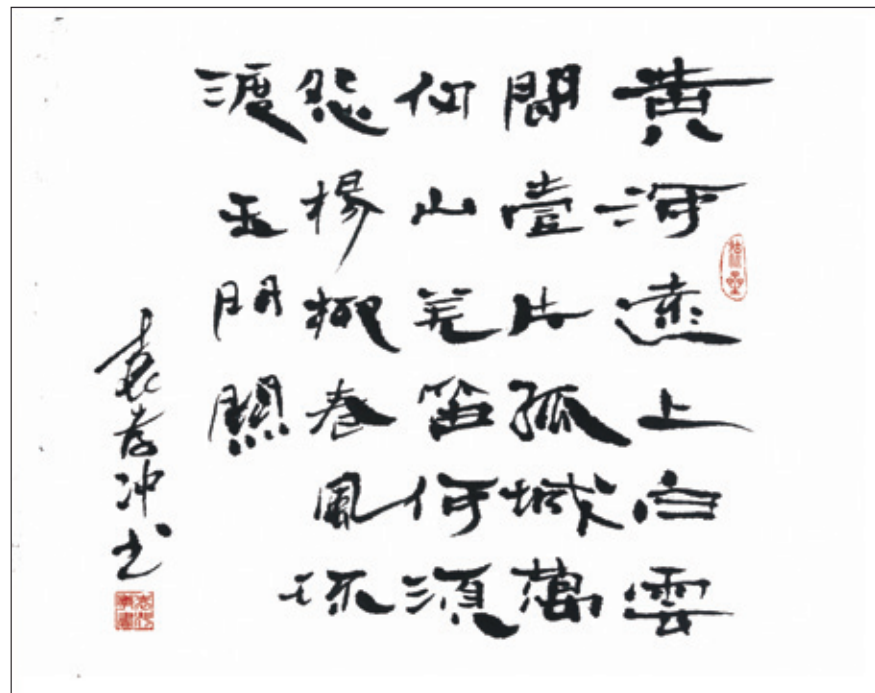 黄河遠上白雲
間壹片孤城萬
仞山羌笛何須
怨楊柳春風环
渡玉門關
袁孝冲书